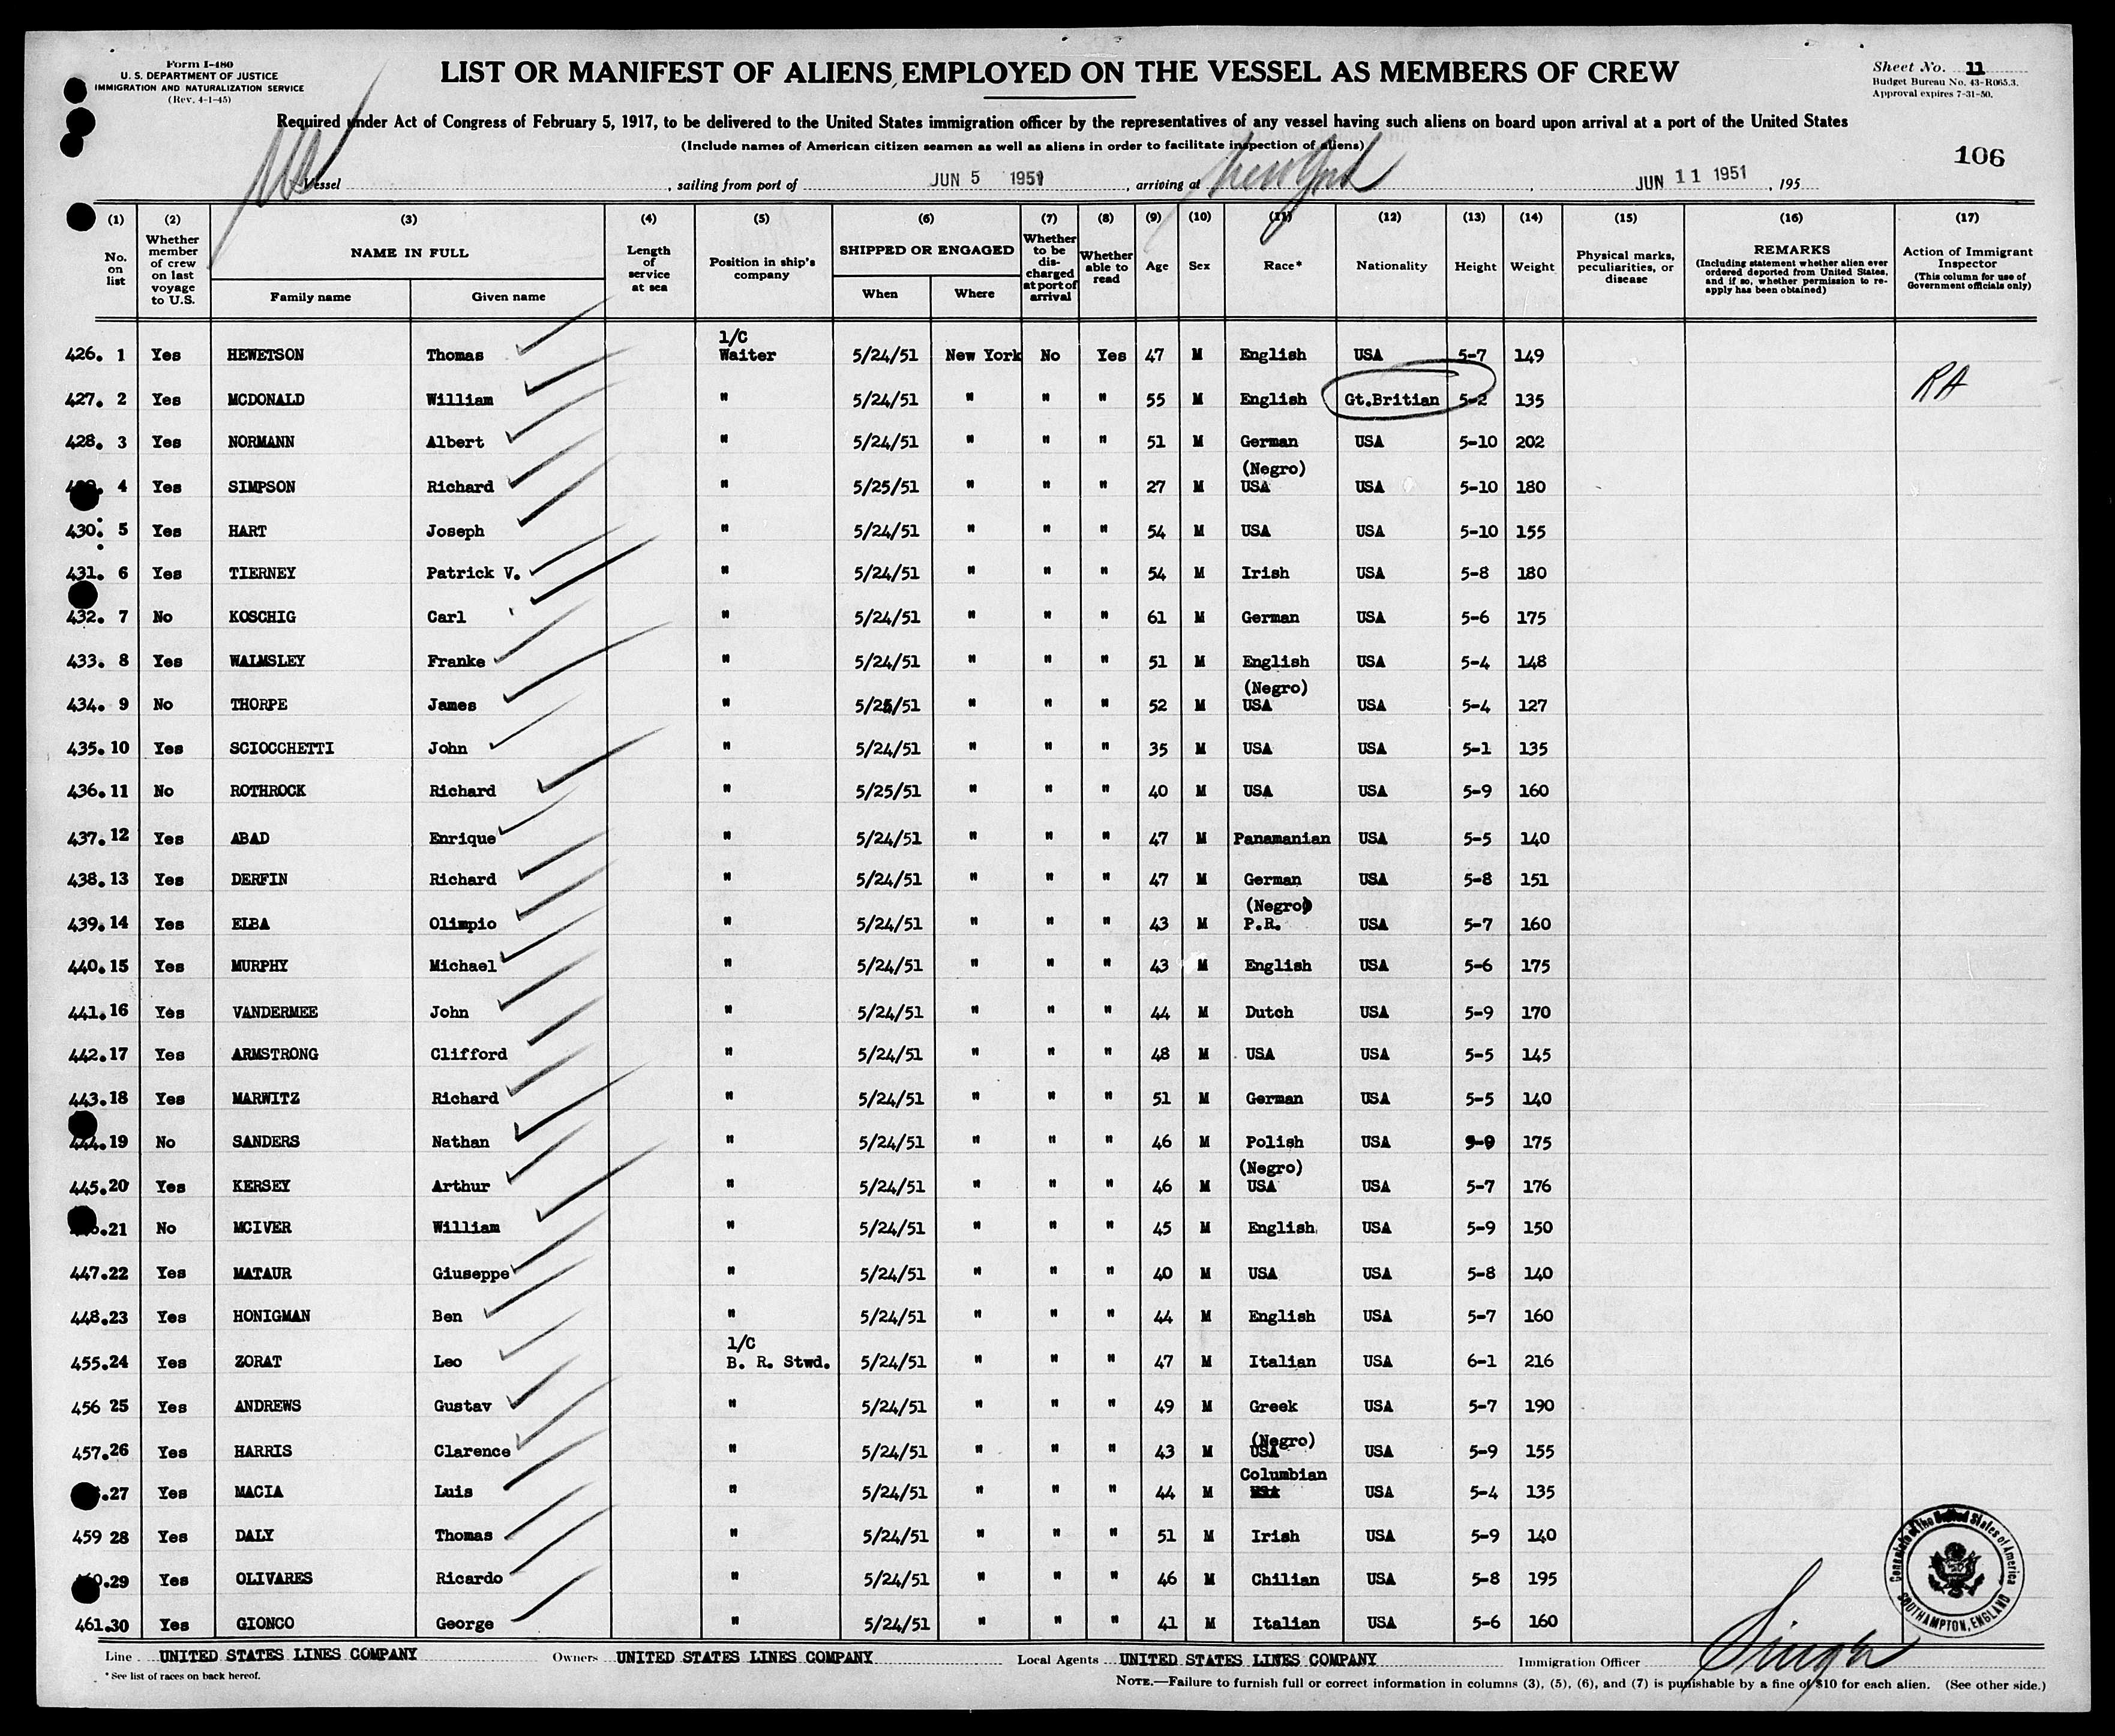 Form I-480
U. S. DEPARTMENT OF JUSTICE
IMMIGRATION AND NATURALIZATION SERVICE
(Rev. 4-1-45)
LIST OR MANIFEST OF ALIENS EMPLOYED ON THE VESSEL AS MEMBERS OF CREW
Sheet No. 11
Budget Bureau No. 43-R065.3.
Approval expires 7-31-50.
Required under Act of Congress of February 5, 1917, to be delivered to the United States immigration officer by the representatives of any vessel having such aliens on board upon arrival at a port of the United States
(Include names of American citizen seamen as well as aliens in order to facilitate inspection of aliens)
106
Vessel , sailing from port of JUN 5 1951 , arriving at New York , JUN 11 1951 , 195
(1) (2) (3) (4) (5) (6) (7) (8) (9) (10) (11) (12) (13) (14) (15) (16) (17)
No. on list
Whether member of crew on last voyage to U.S.
NAME IN FULL
Family name Given name
Length of service at sea
Position in ship's company
SHIPPED OR ENGAGED
When Where
Whether to be discharged at port of arrival
Whether able to read
Age
Sex
Race*
Nationality
Height
Weight
Physical marks, peculiarities, or disease
REMARKS
(Including statement whether alien ever ordered deported from United States, and if so, whether permission to reapply has been obtained)
Action of Immigrant Inspector
(This column for use of Government officials only)
426. 1 Yes HEWETSON Thomas 1/C Waiter 5/24/51 New York No Yes 47 M English USA 5-7 149
427. 2 Yes MCDONALD William " 5/24/51 " " " 55 M English Gt.Britian 5-2 135 RA
428. 3 Yes NORMANN Albert " 5/24/51 " " " 51 M German USA 5-10 202
4 Yes SIMPSON Richard " 5/25/51 " " " 27 M (Negro) USA USA 5-10 180
430. 5 Yes HART Joseph " 5/24/51 " " " 54 M USA USA 5-10 155
431. 6 Yes TIERNEY Patrick V. " 5/24/51 " " " 54 M Irish USA 5-8 180
432. 7 No KOSCHIG Carl " 5/24/51 " " " 61 M German USA 5-6 175
433. 8 Yes WALMSLEY Franke " 5/24/51 " " " 51 M English USA 5-4 148
434. 9 No THORPE James " 5/25/51 " " " 52 M (Negro) USA USA 5-4 127
435. 10 Yes SCIOCCHETTI John " 5/24/51 " " " 35 M USA USA 5-1 135
436. 11 No ROTHROCK Richard " 5/25/51 " " " 40 M USA USA 5-9 160
437. 12 Yes ABAD Enrique " 5/24/51 " " " 47 M Panamanian USA 5-5 140
438. 13 Yes DERFIN Richard " 5/24/51 " " " 47 M German USA 5-8 151
439. 14 Yes ELBA Olimpio " 5/24/51 " " " 43 M (Negro) P.R. USA 5-7 160
440. 15 Yes MURPHY Michael " 5/24/51 " " " 43 M English USA 5-6 175
441. 16 Yes VANDERMEE John " 5/24/51 " " " 44 M Dutch USA 5-9 170
442. 17 Yes ARMSTRONG Clifford " 5/24/51 " " " 48 M USA USA 5-5 145
443. 18 Yes MARWITZ Richard " 5/24/51 " " " 51 M German USA 5-5 140
444. 19 No SANDERS Nathan " 5/24/51 " " " 46 M Polish USA 175
445. 20 Yes KERSEY Arthur " 5/24/51 " " " 46 M (Negro) USA USA 5-7 176
21 No MCIVER William " 5/24/51 " " " 45 M English USA 5-9 150
447. 22 Yes MATAUR Giuseppe " 5/24/51 " " " 40 M USA USA 5-8 140
448. 23 Yes HONIGMAN Ben " 5/24/51 " " " 44 M English USA 5-7 160
455. 24 Yes ZORAT Leo 1/C B. R. Stwd. 5/24/51 " " " 47 M Italian USA 6-1 216
456 25 Yes ANDREWS Gustav " 5/24/51 " " " 49 M Greek USA 5-7 190
457. 26 Yes HARRIS Clarence " 5/24/51 " " " 43 M (Negro) USA USA 5-9 155
27 Yes MACIA Luis " 5/24/51 " " " 44 M Columbian USA 5-4 135
459 28 Yes DALY Thomas " 5/24/51 " " " 51 M Irish USA 5-9 140
29 Yes OLIVARES Ricardo " 5/24/51 " " " 46 M Chilian USA 5-8 195
461. 30 Yes GIONCO George " 5/24/51 " " " 41 M Italian USA 5-6 160
Consulate of the United States of America
SOUTHAMPTON, ENGLAND
Line UNITED STATES LINES COMPANY Owners UNITED STATES LINES COMPANY Local Agents UNITED STATES LINES COMPANY Immigration Officer
* See list of races on back hereof.
NOTE.—Failure to furnish full or correct information in columns (3), (5), (6), and (7) is punishable by a fine of $10 for each alien. (See other side.)